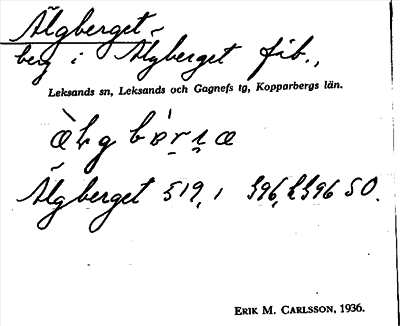 Älgberget
berg i Älgberget fäb.,
Leksands sn, Leksands och Gagnefs tg, Kopparbergs län.
Älgberget 519, 1 SO.
ERIK M. CARLSSON, 1936.